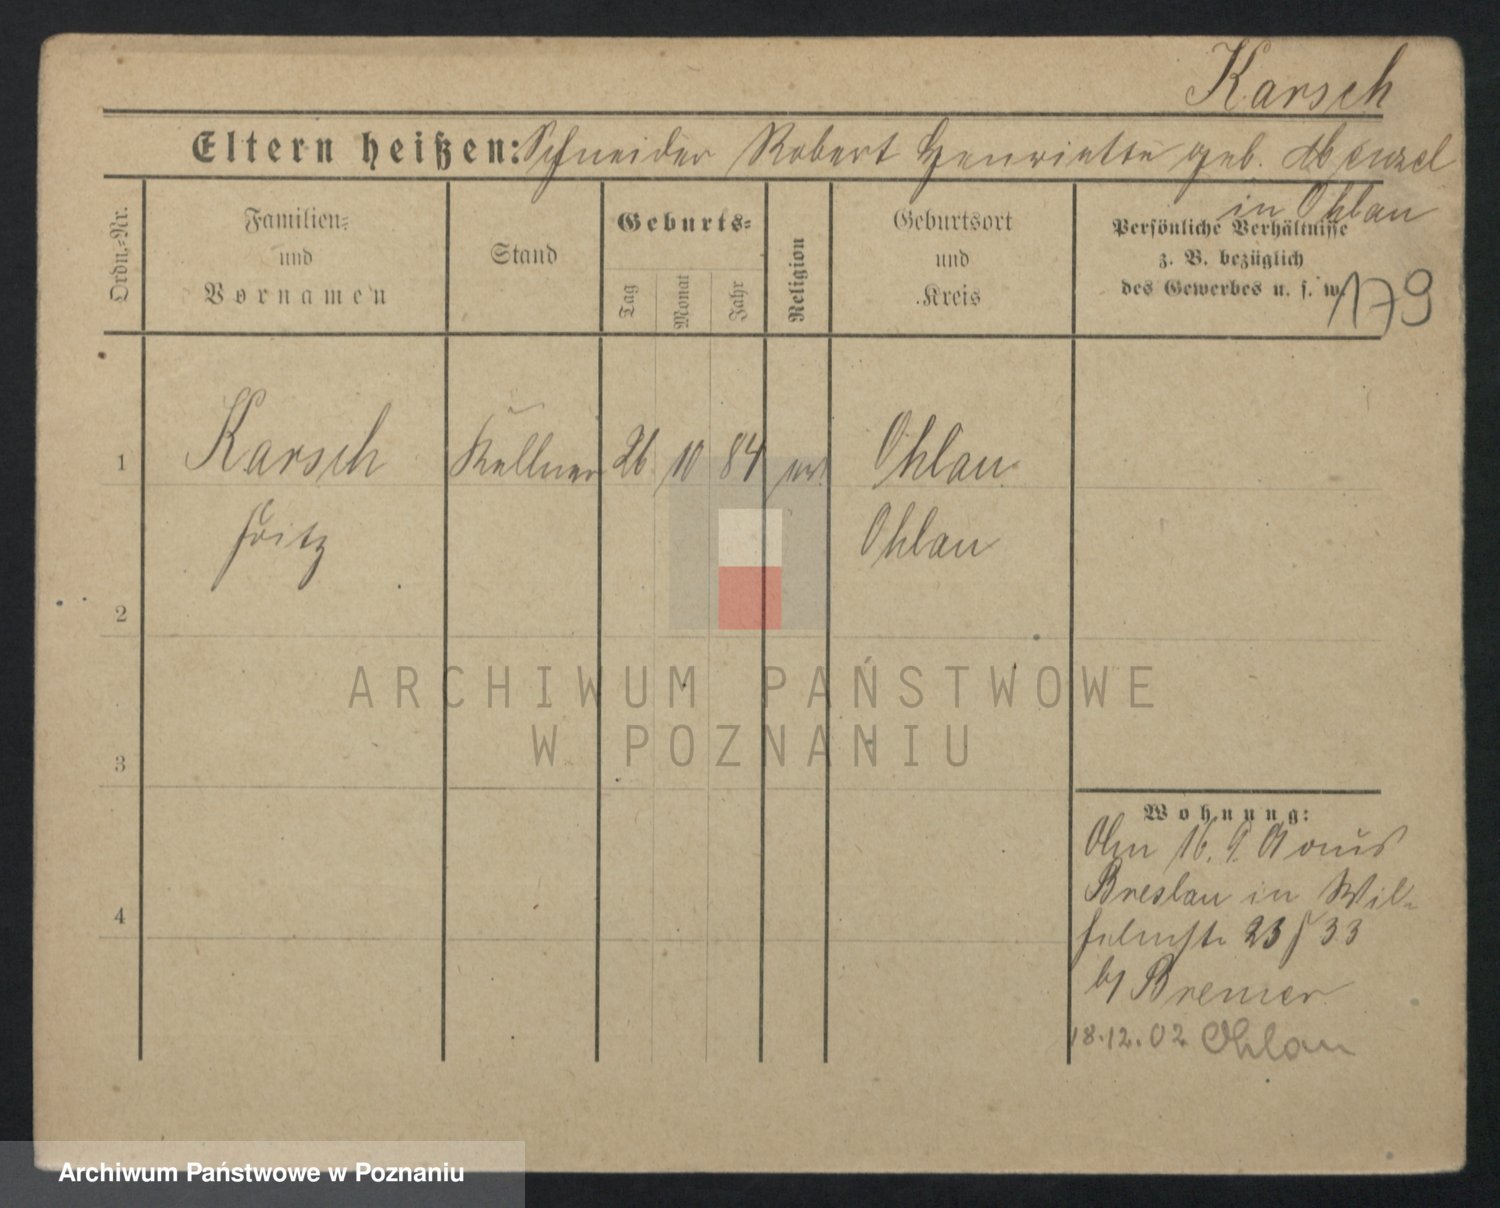 Karsch
Eltern heißen: Schneider Robert Henriette geb. Menzel
in Ohlau
Ordn.-Nr.
Familien-
und
Vornamen
Stand
Geburts-
Tag
Monat
Jahr
Religion
Geburtsort
und
Kreis
Persönliche Verhältnisse
z. B. bezüglich
des Gewerbes u. s. w.
179
1
Karsch
Kellner
26
10
84
ev.
Ohlau
Fritz
Ohlau
2
ARCHIWUM PAŃSTWOWE
W POZNANIU
3
Wohnung:
16. 9. 01 aus
Breslau in Wil-
helmstr. 23 33
b/ Bremer
18.12.02 Ohlau
4
Archiwum Państwowe w Poznaniu